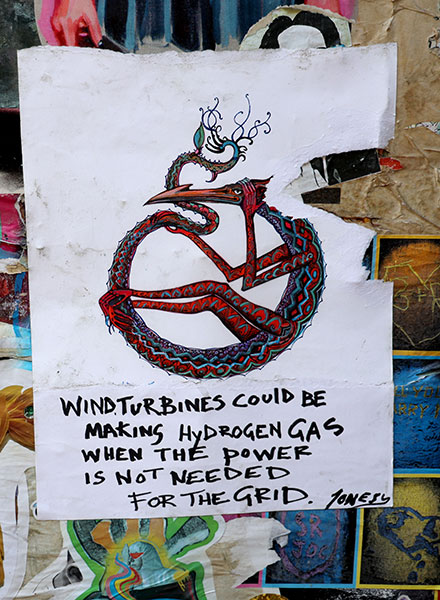 WIND TURBINES COULD BE
MAKING HyDROGEN GAS
WHEN THE POWER
IS NOT NEEDED
FOR THE GRID. JONESY